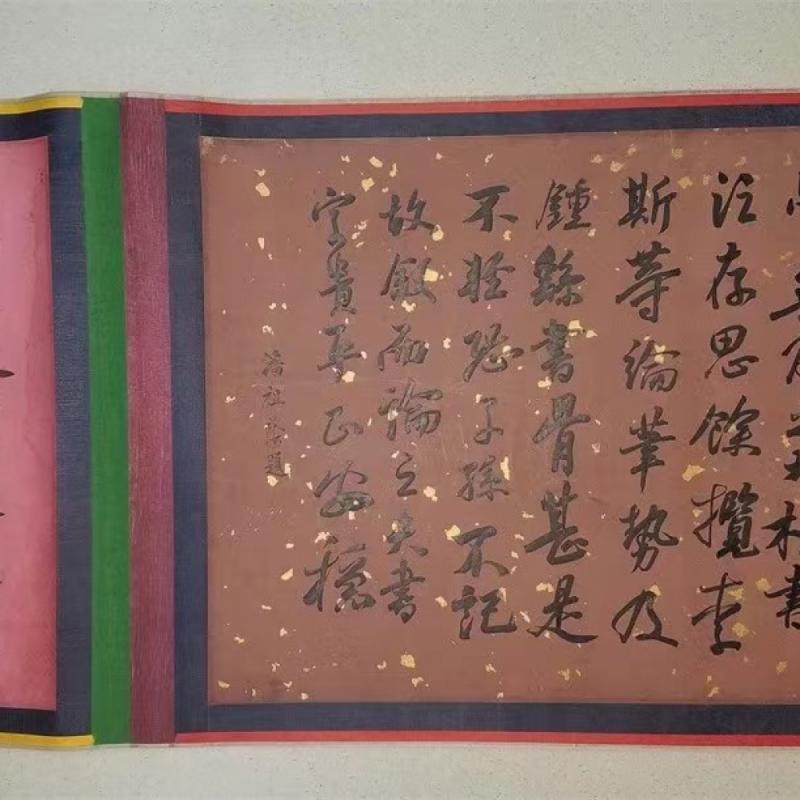 書
須存思餘攬李
斯等論筆勢及
鍾繇書骨甚是
不輕恐子孫不記
故敘而論之夫書
字貴平正安穩
潘祖蔭題